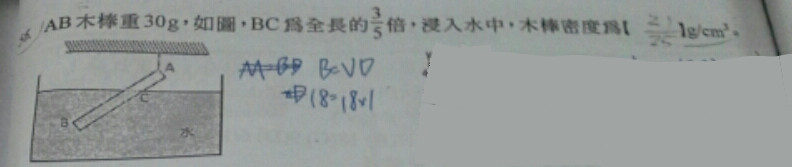 AB木棒重30g，如圖，BC為全長的3/5倍，浸入水中，木棒密度為【21/25】g/cm³。
A
C
B
水
B=VD
18=18×1